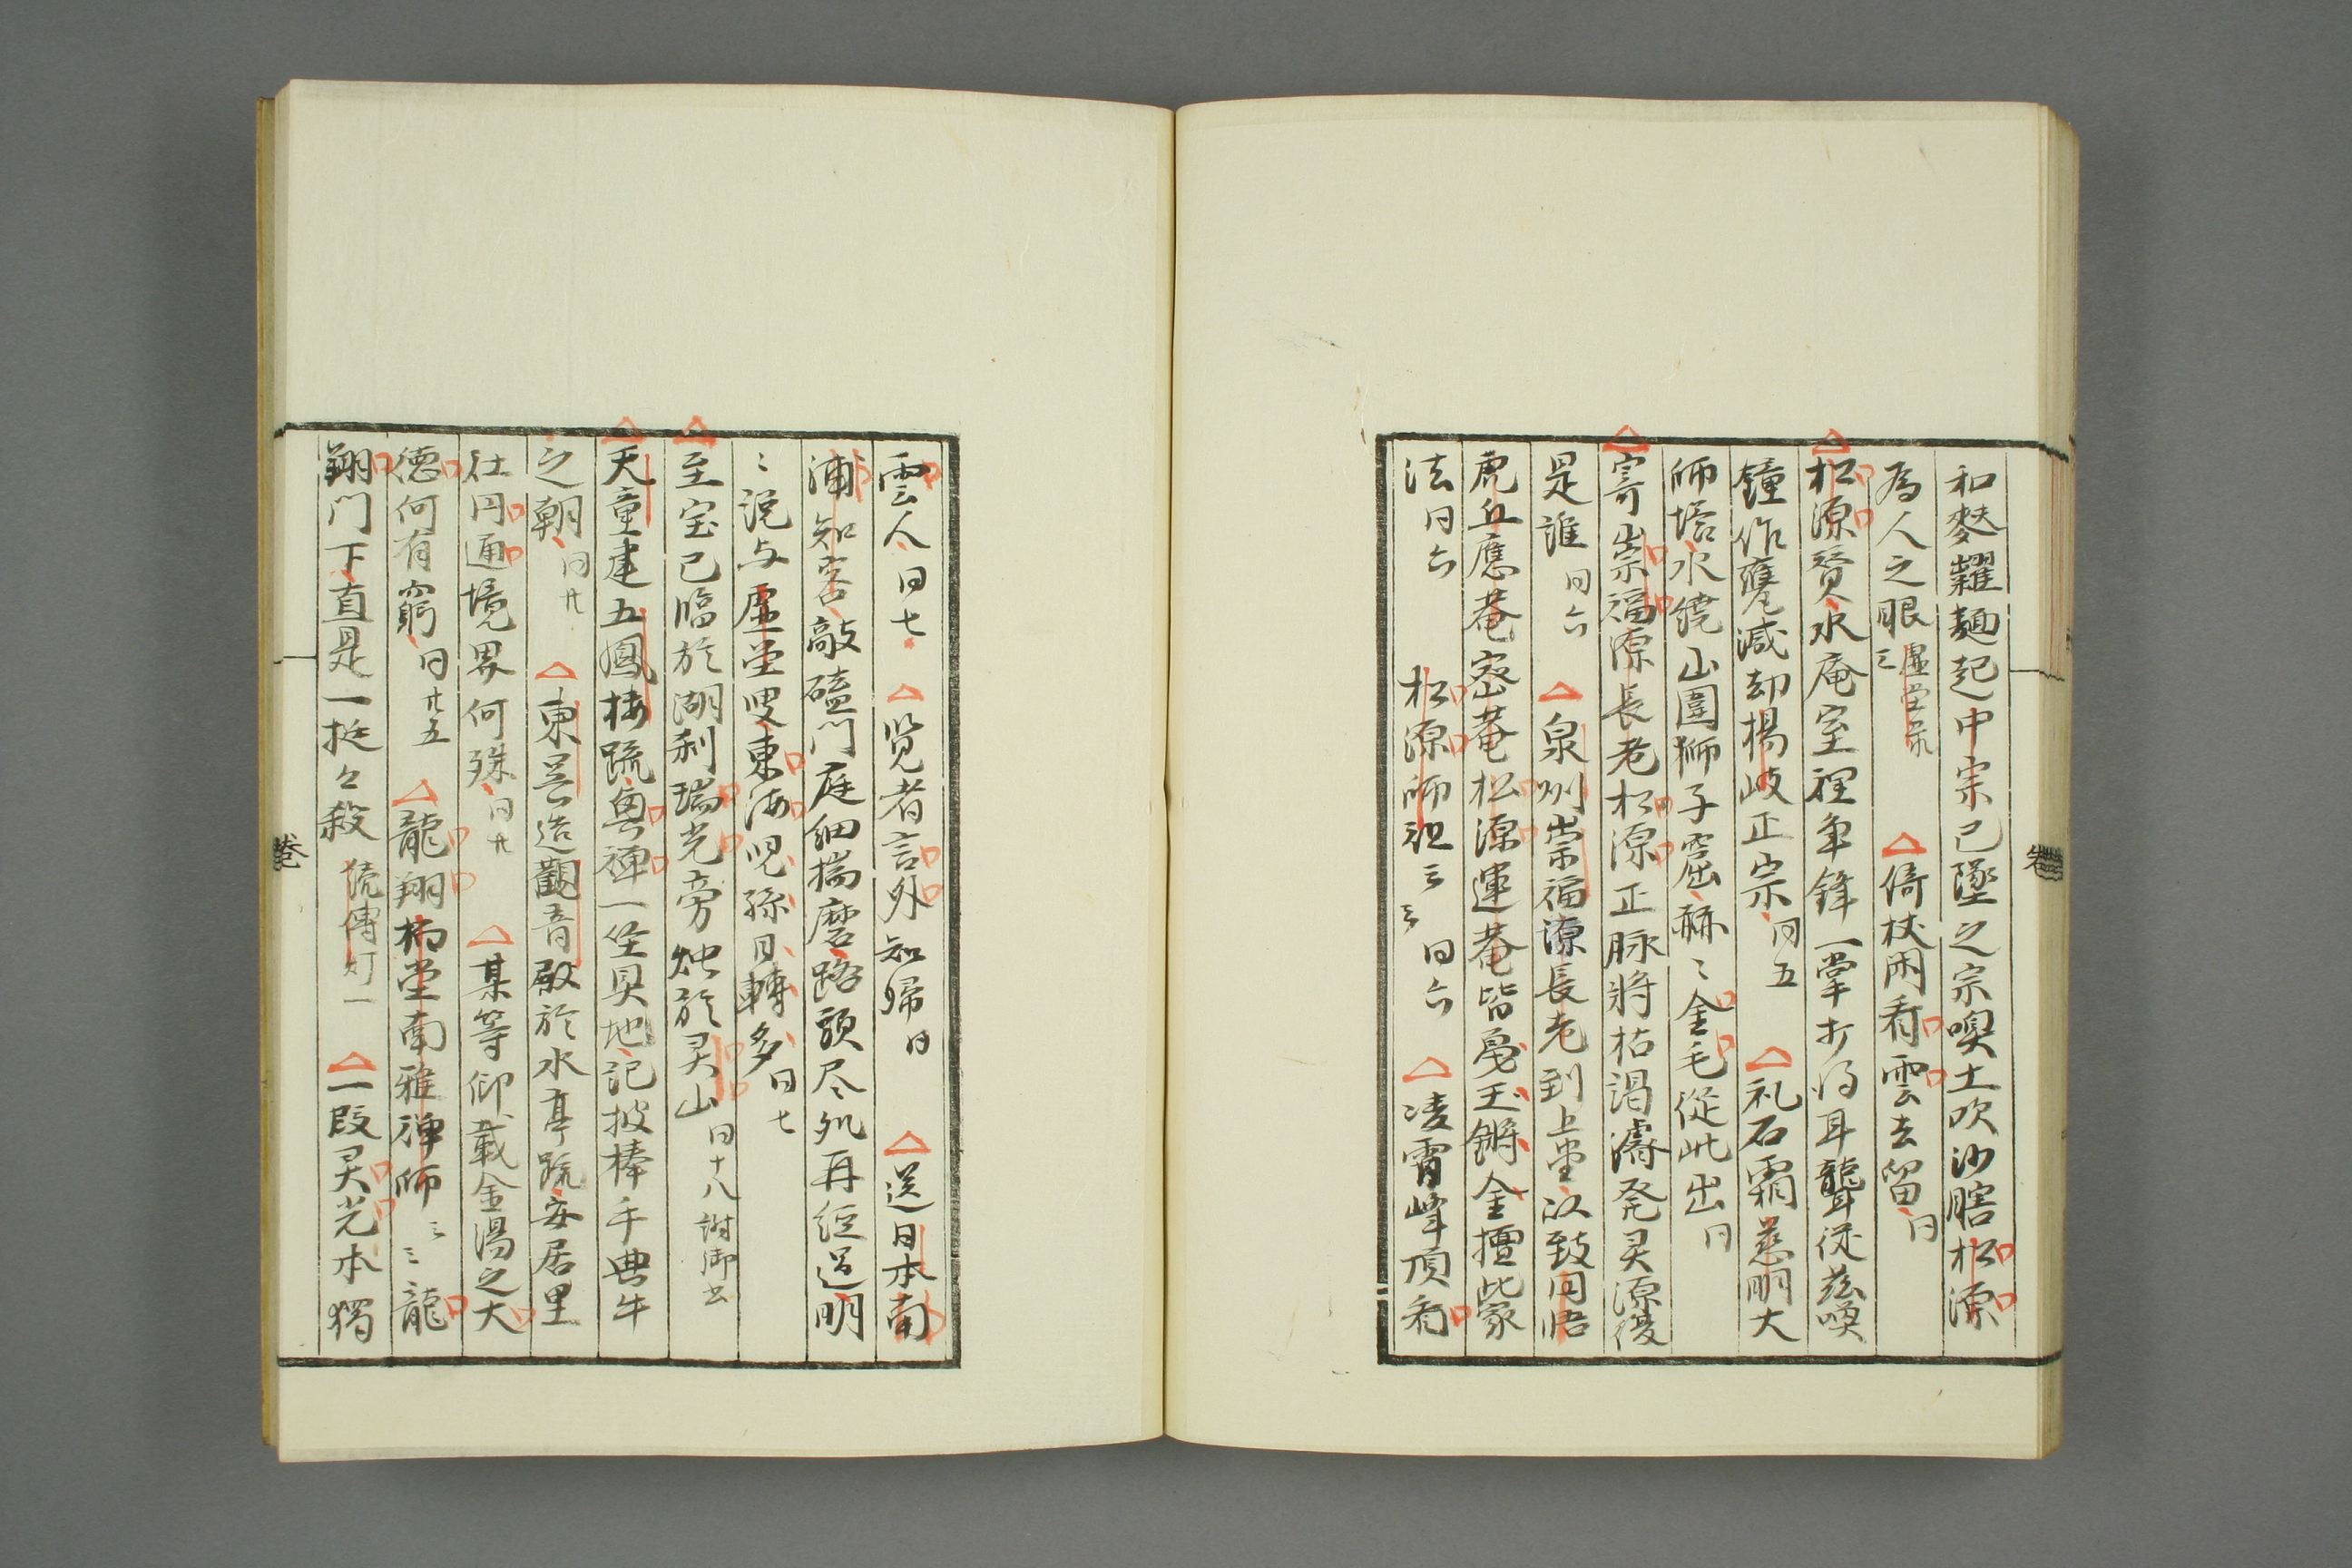 和麩糶麺起中宗已墜之宗喫土吹沙瞎松源
為人之眼虚堂录三 △倚杖閑看雲去留同
△松源賛水庵室裡争鋒一掌打得耳聾従茲喚
鐘作甕滅却楊岐正宗同五 △礼石霜慈明大
師塔水繞山圍獅子窟赫〻金毛従此出同
△寄崇福源長老松源正脉将枯渇濤発灵源復
是誰同六 △泉州崇福源長老到上堂以致同悟
虎丘應菴密菴松源運菴皆戞玉鏘金擅此家
法同六 松源師祖三三同六 △凌霄峰頂看
雲人同七 △览者言外知帰同 △送日本南
浦知客敲磕門庭細揣磨路頭尽処再経過明
〻説与虚堂叟東海児孫日轉多同七
△至宝已臨於湖刹瑞光旁烛於灵山同十八謝御書
△天童建五鳳楼疏奥禅一坐具地記披棒手典牛
之朝同廿 △東呉造觀音殿於水亭疏安居里
社円通境界何殊同廿 △某等仰載金湯之大
德何有窮同廿五 △龍翔柏堂南雅禅师三三龍
翔门下直是一挺々殺 续傳灯一 △一段灵光本獨